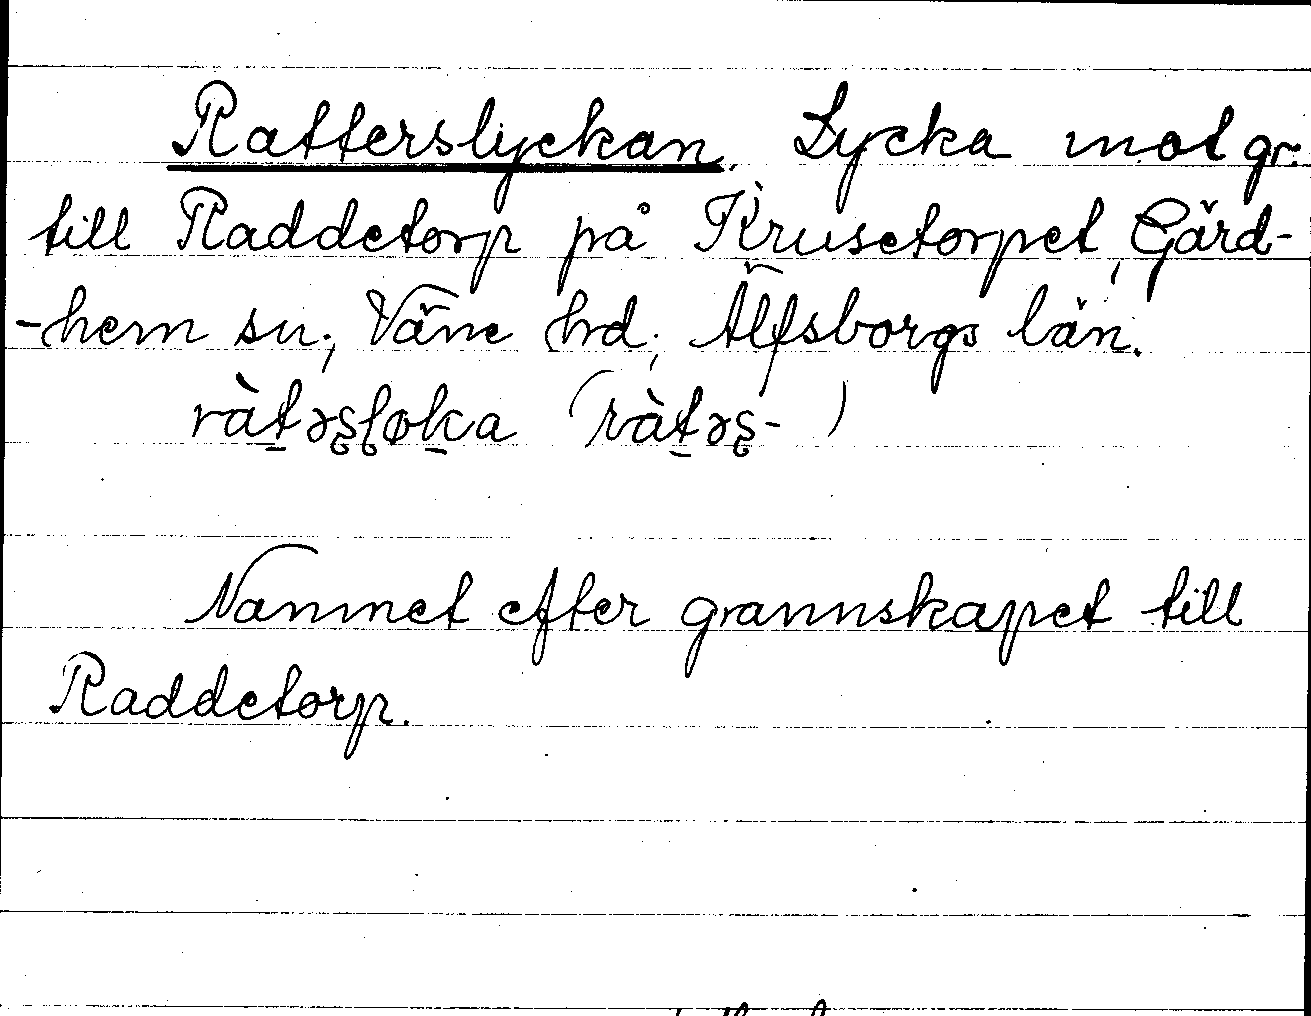 Ratterslyckan. Lycka mot gr.
till Raddetorp på Krusetorpet, Gärd-
-hem sn; Väne hd; Älfsborgs län.
ràt̠əʂɭøk̠a (ràt̠əʂ- )
Namnet efter grannskapet till
Raddetorp.